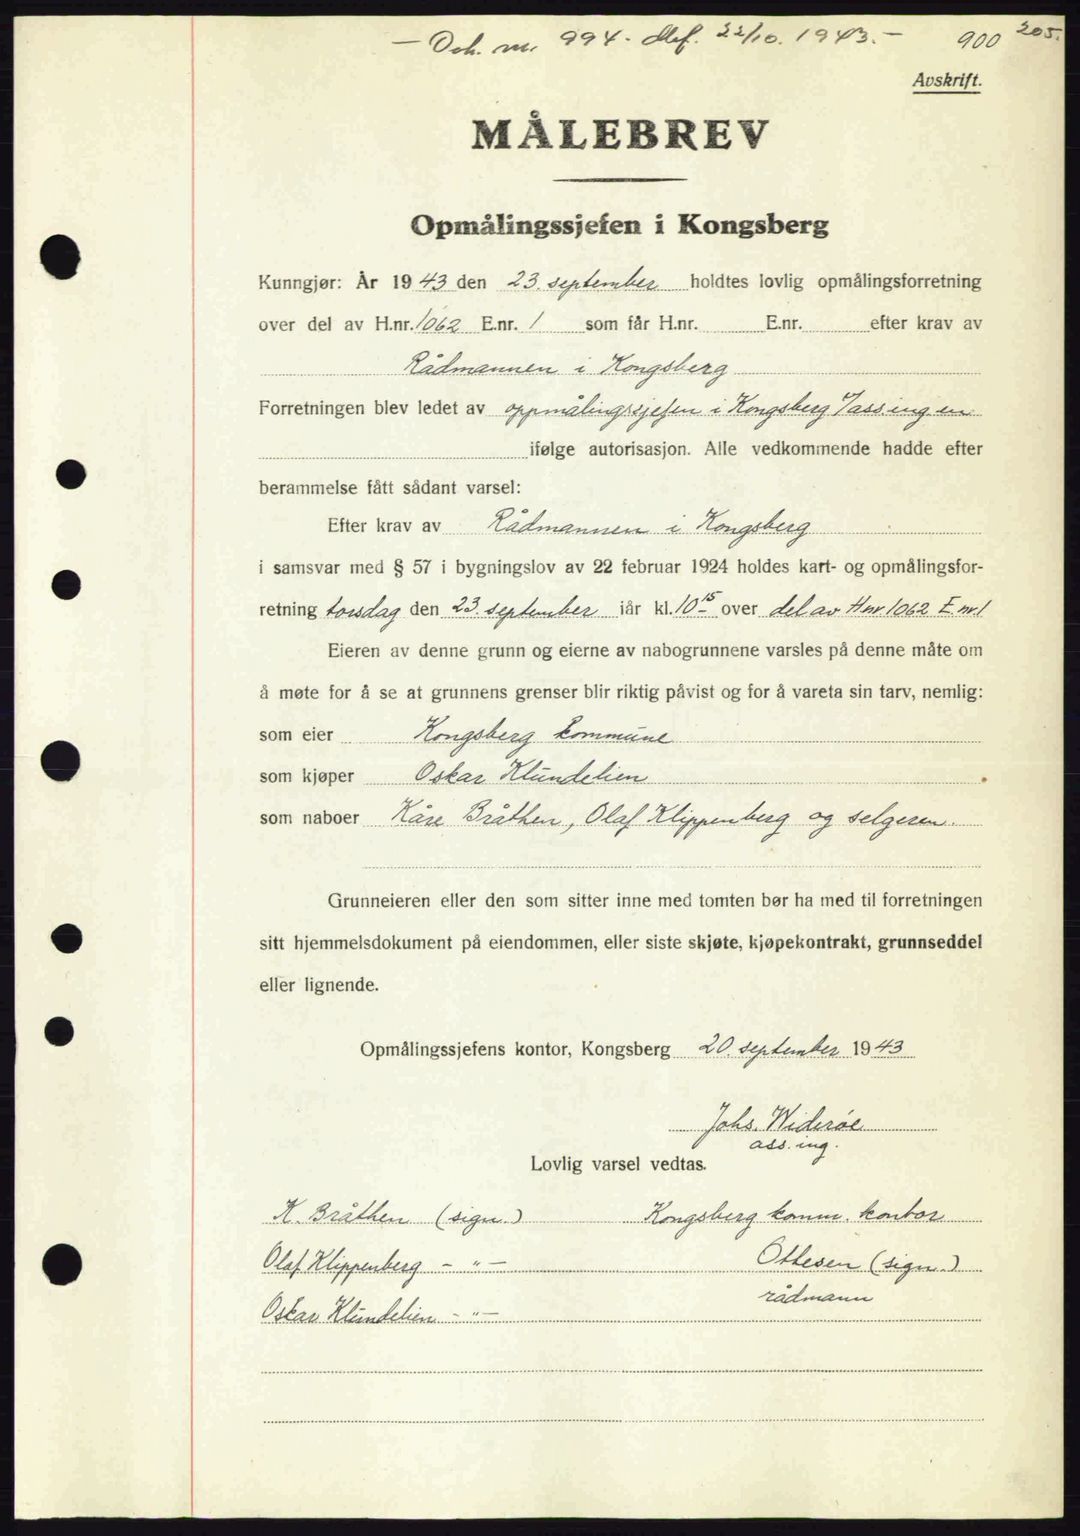 — Dok. nr. 994. Mf. 22/10. 1943. — 900 205.
Avskrift.
MÅLEBREV
Opmålingssjefen i Kongsberg
Kunngjør: År 1943 den 23. september holdtes lovlig opmålingsforretning
over del av H.nr. 1062 E.nr. 1 som får H.nr. E.nr. efter krav av
Rådmannen i Kongsberg
Forretningen blev ledet av oppmålingssjefen i Kongsberg v/ass ing en
ifølge autorisasjon. Alle vedkommende hadde efter
berammelse fått sådant varsel:
Efter krav av Rådmannen i Kongsberg
i samsvar med § 57 i bygningslov av 22 februar 1924 holdes kart- og opmålingsfor-
retning torsdag den 23. september iår kl. 10 15 over del av H.nr. 1062 E.nr. 1
Eieren av denne grunn og eierne av nabogrunnene varsles på denne måte om
å møte for å se at grunnens grenser blir riktig påvist og for å vareta sin tarv, nemlig:
som eier Kongsberg kommune
som kjøper Oskar Klundelien
som naboer Kåre Bråthen, Olaf Klippenberg og selgeren.
Grunneieren eller den som sitter inne med tomten bør ha med til forretningen
sitt hjemmelsdokument på eiendommen, eller siste skjøte, kjøpekontrakt, grunnseddel
eller lignende.
Opmålingssjefens kontor, Kongsberg 20. september 1943
Johs. Widerøe
ass. ing.
Lovlig varsel vedtas.
K. Bråthen (sign.) Kongsberg komm. kontor
Olaf Klippenberg - " - Ottesen (sign.)
rådmann
Oskar Klundelien - " -